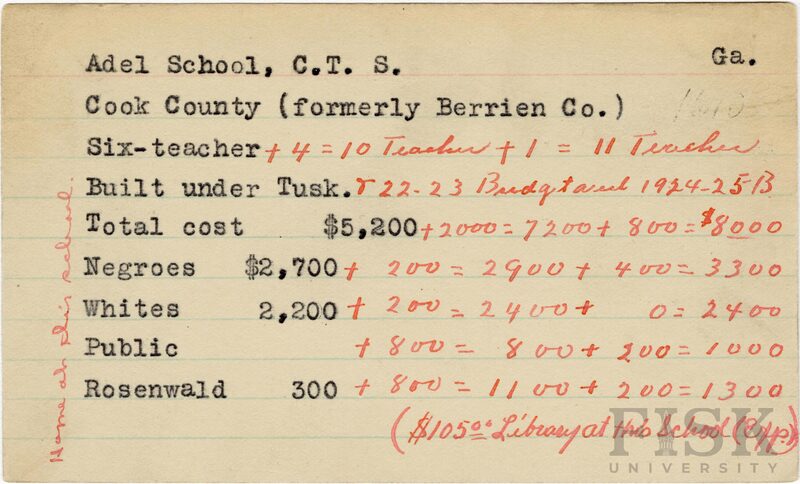 Adel School, C.T. S. Ga.
Cook County (formerly Berrien Co.)
Six-teacher + 4 = 10 Teacher + 1 = 11 Teacher
Built under Tusk. & 22-23 Budget and 1924-25 B
Total cost $5,200 + 2000 = 7200 + 800 = $8000
Negroes $2,700 + 200 = 2900 + 400 = 3300
Whites 2,200 + 200 = 2400 + 0 = 2400
Public + 800 = 800 + 200 = 1000
Rosenwald 300 + 800 = 1100 + 200 = 1300
($105.00 Library at this School
Home at this school.
FISK
UNIVERSITY